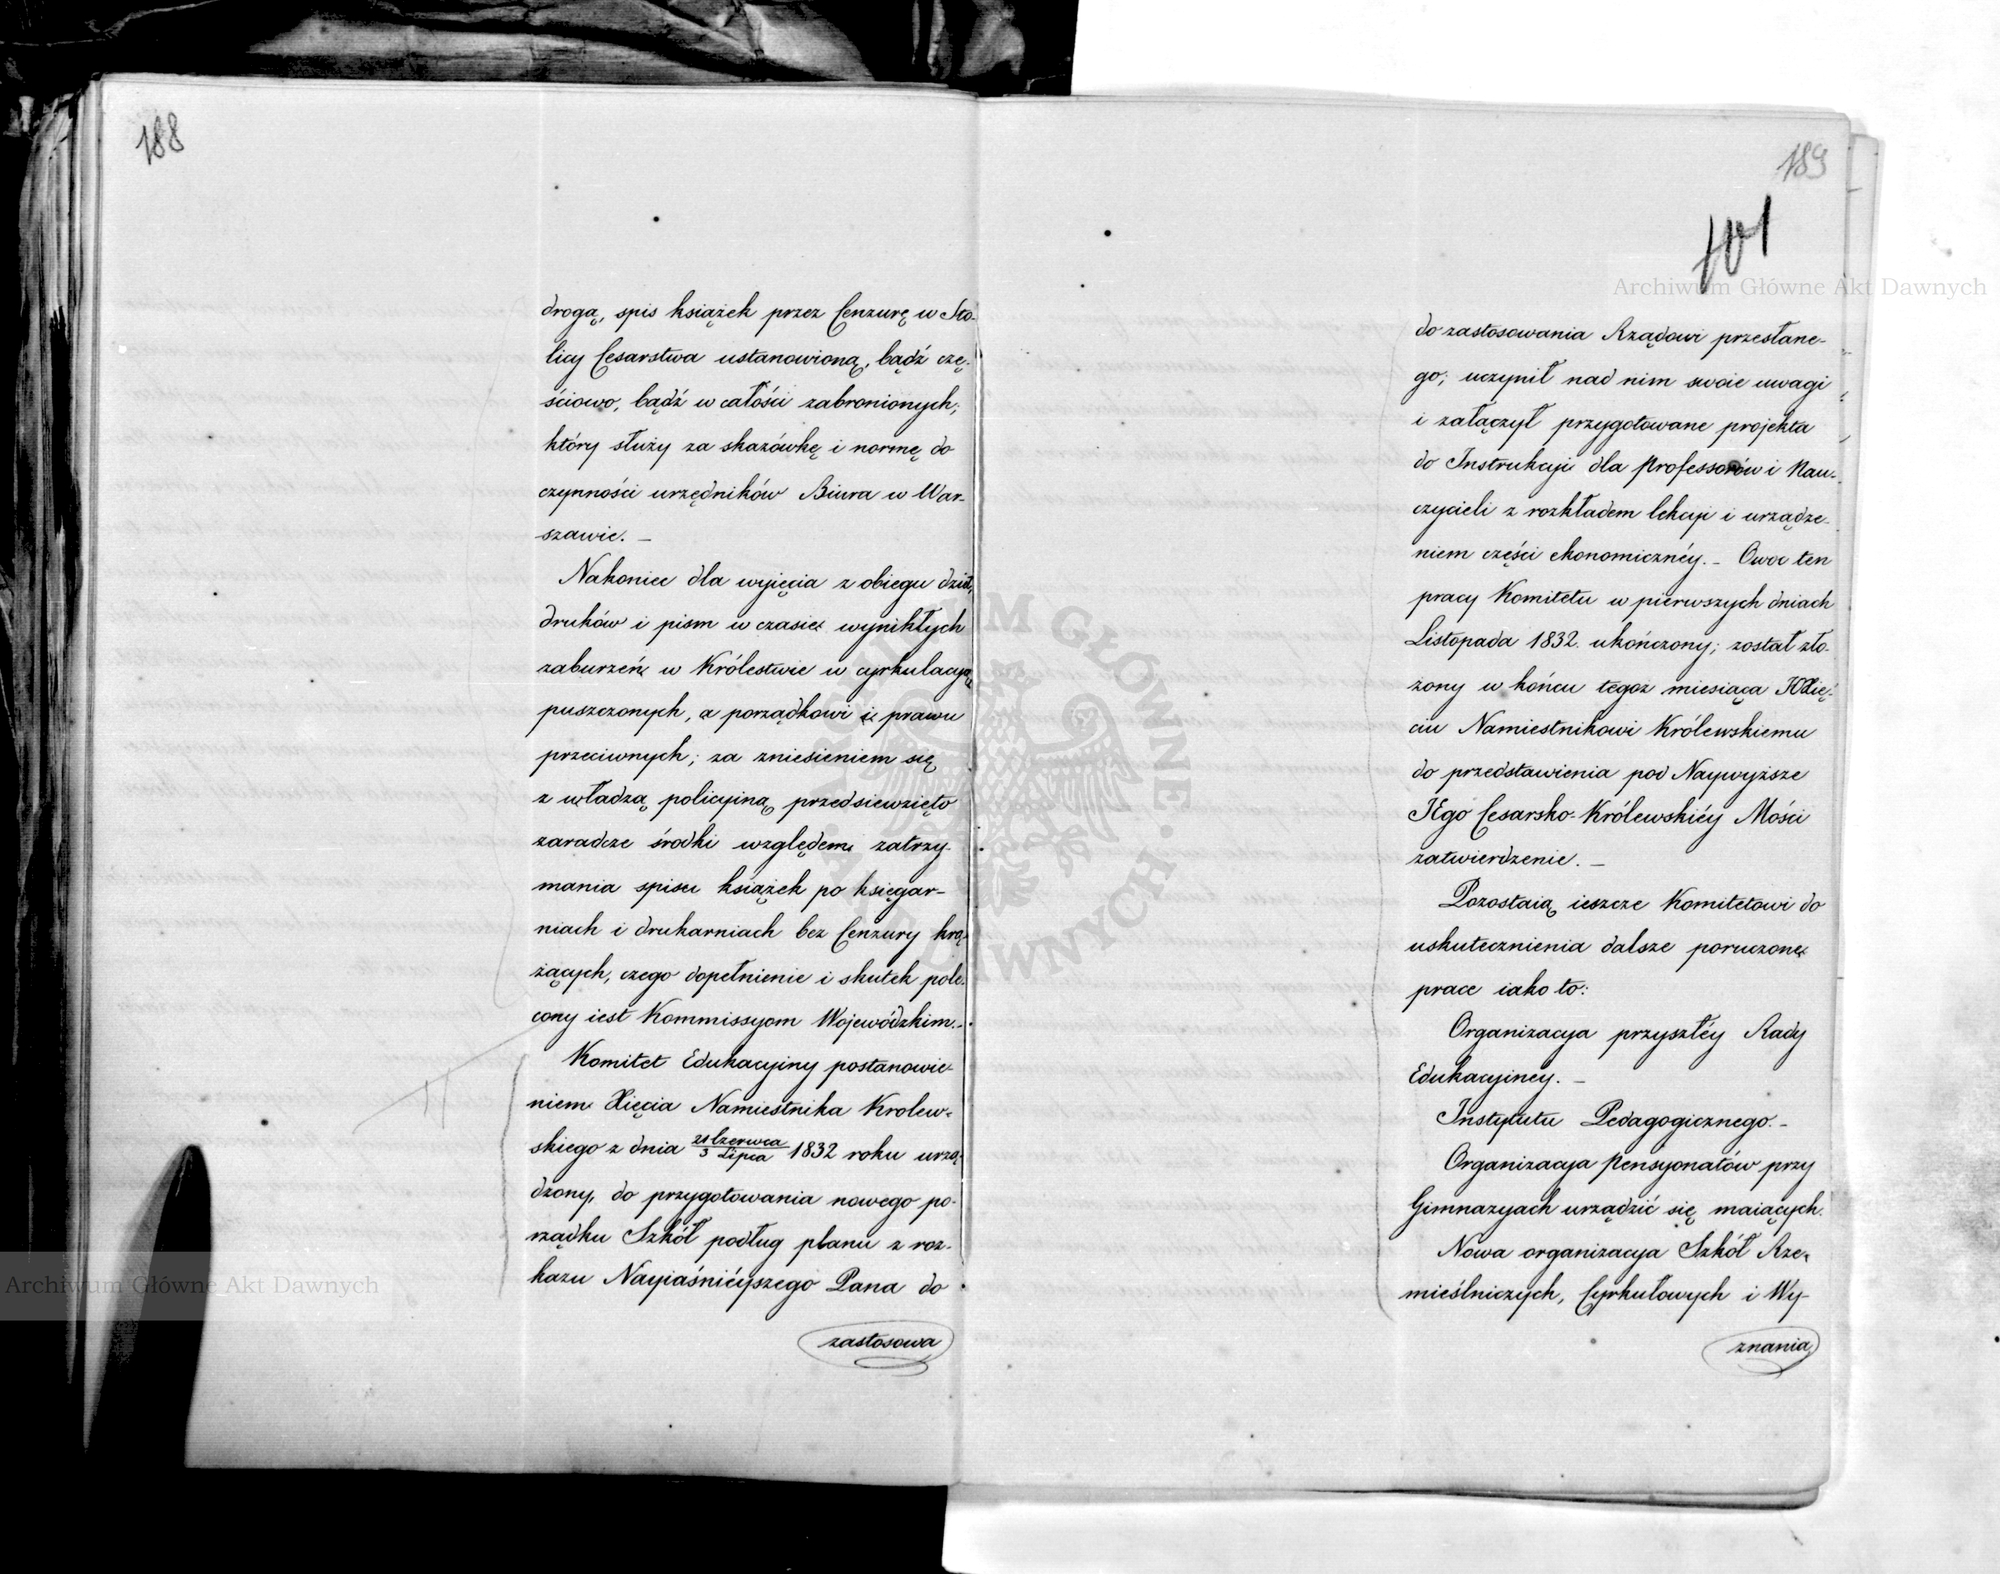 188
drogą, spis książek przez Cenzurę w Sto-
licy Cesarstwa ustanowioną, bądź czę-
ściowo, bądź w całości zabronionych;
który służy za skazówkę i normę do
czynności urzędników Biura w War-
szawie. —
Nakoniec dla wyięcia z obiegu dzieł,
druków i pism w czasie wynikłych
zaburzeń w Królestwie w cyrkulacyą
puszczonych, a porządkowi i prawu
przeciwnych; za zniesieniem się
z władzą policyiną przedsiewzięto
zaradcze środki względem zatrzy-
mania spisu książek po księgar-
niach i drukarniach bez Cenzury krą-
żących, czego dopełnienie i skutek pole-
cony iest Kommissyom Wojewódzkim. -
Komitet Edukacyiny postanowie-
niem Xięcia Namiestnika Krolew-
skiego z dnia 21 Czerwca / 3 Lipca 1832 roku urzą-
dzony, do przygotowania nowego po-
rządku Szkół podług planu z roz-
kazu Nayiaśnieyszego Pana do
zastosowa
189
101
do zastosowania Rządowi przesłane-
go; uczynił nad nim swoie uwagi
i załączył przygotowane projekta
do Instrukcji dla Professorów i Nau-
czycieli z rozkładem lekcyi i urządze-
niem części ekonomicznéy. - Owoc ten
pracy Komitetu w pierwszych dniach
Listopada 1832. ukończony; został zło-
żony w końcu tegoż miesiąca JOXię-
ciu Namiestnikowi Królewskiemu
do przedstawienia pod Naywyższe
JEgo Cesarsko-Królewskiéy Mości
zatwierdzenie. —
Pozostaią ieszcze Komitetowi do
uskutecznienia dalsze poruczone
prace iako to:
Organizacya przyszłéy Rady
Edukacyiney. —
Instytutu Pedagogicznego. -
Organizacya Pensyonatów przy
Gimnazyach urządzić się maiących.
Nowa organizacya Szkół Rze-
mieślniczych, Cyrkułowych i Wy-
znania
Archiwum Główne Akt Dawnych
Archiwum Główne Akt Dawnych